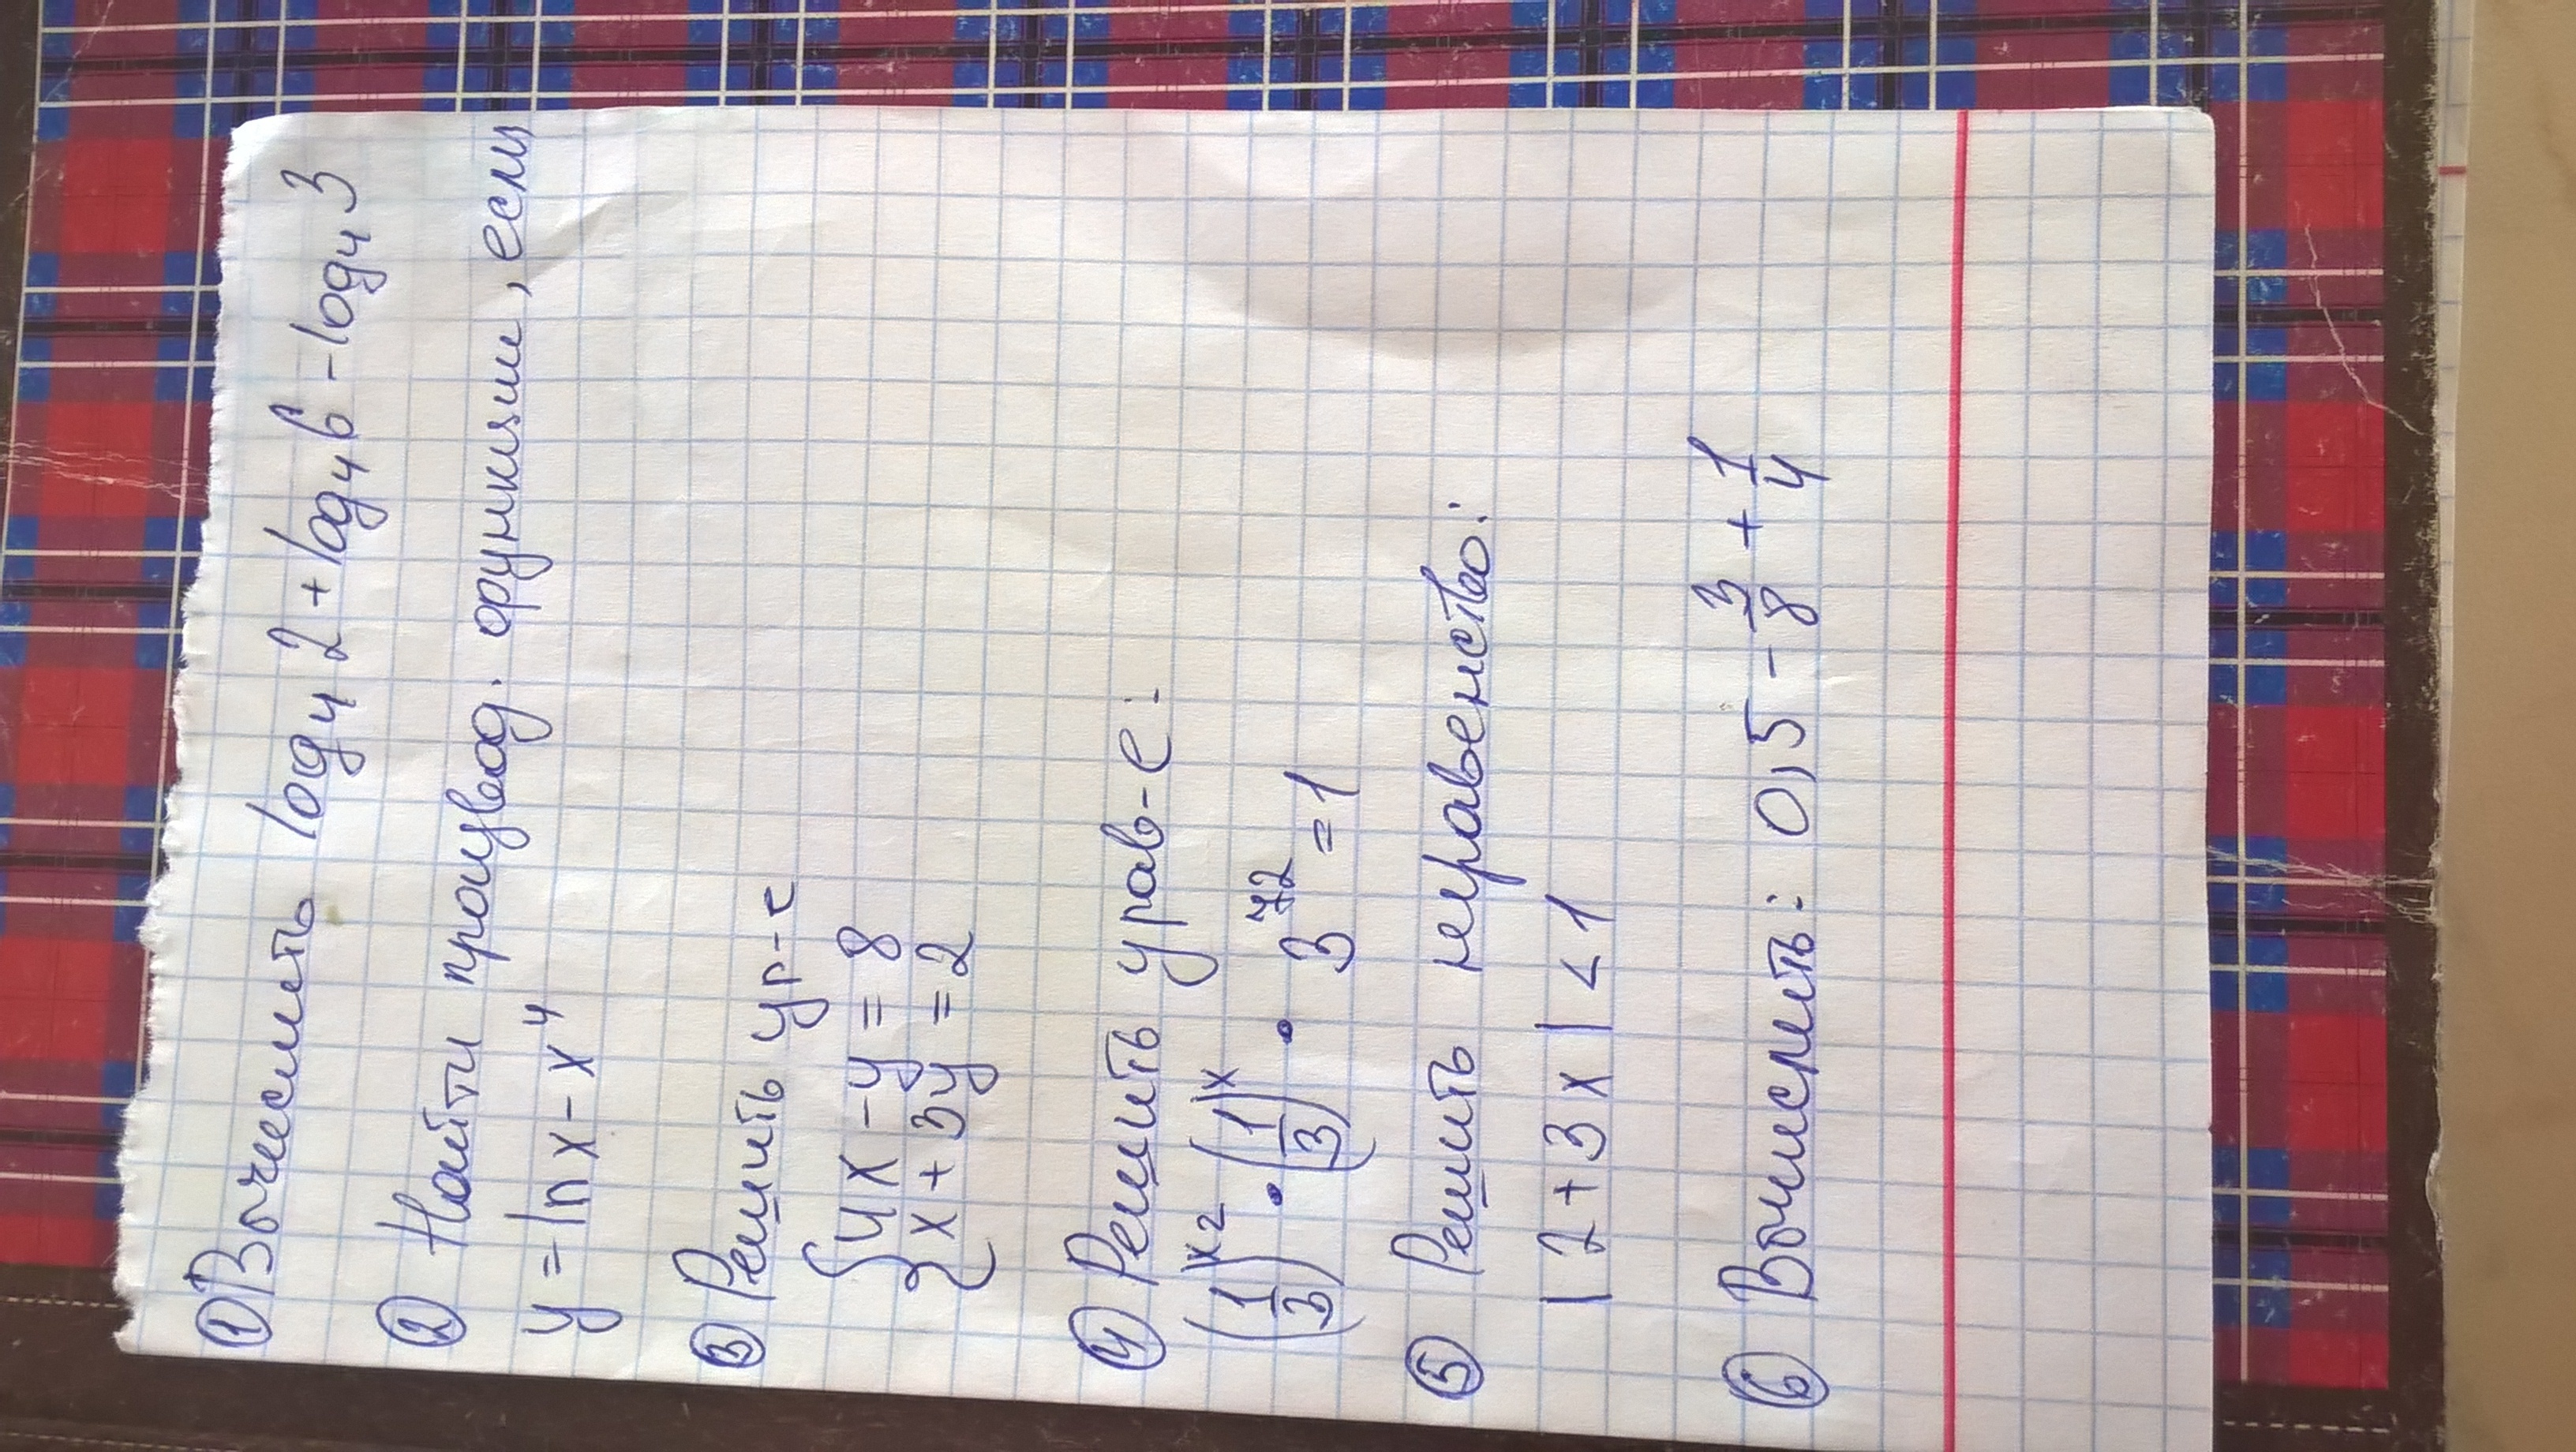 ① Вычислить log₄2 + log₄6 - log₄3
② Найти производ. функции, если
y = ln x - x⁴
③ Решить ур-е
{4x - y = 8
{x + 3y = 2
④ Решить урав-е:
(1/3)^x² · (1/3)^x · 3^72 = 1
⑤ Решить неравенство:
|2 + 3x| < 1
⑥ Вычислить: 0,5 - 3/8 + 1/4